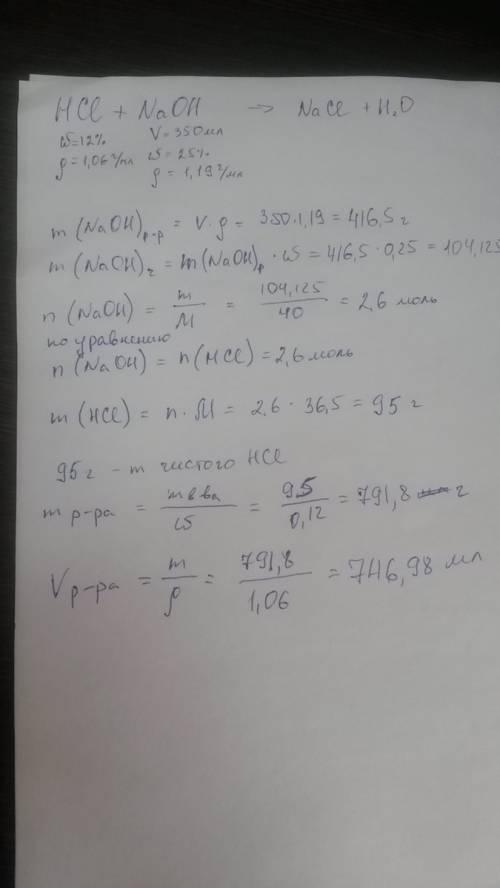 HCl + NaOH → NaCl + H₂O
ω=12% V=350мл
ρ=1,06 г/мл ω=25%
ρ=1,19 г/мл
m (NaOH)р-р = V·ρ = 350·1,19 = 416,5 г
m (NaOH)ч = m(NaOH)р · ω = 416,5 · 0,25 = 104,125
n (NaOH) = m/M = 104,125/40 = 2,6 моль
по уравнению
n (NaOH) = n (HCl) = 2,6 моль
m (HCl) = n · M = 2,6 · 36,5 = 95 г
95 г - m чистого HCl
m р-ра = m в ва/ω = 95/0,12 = 791,8 г
V р-ра = m/ρ = 791,8/1,06 = 746,98 мл